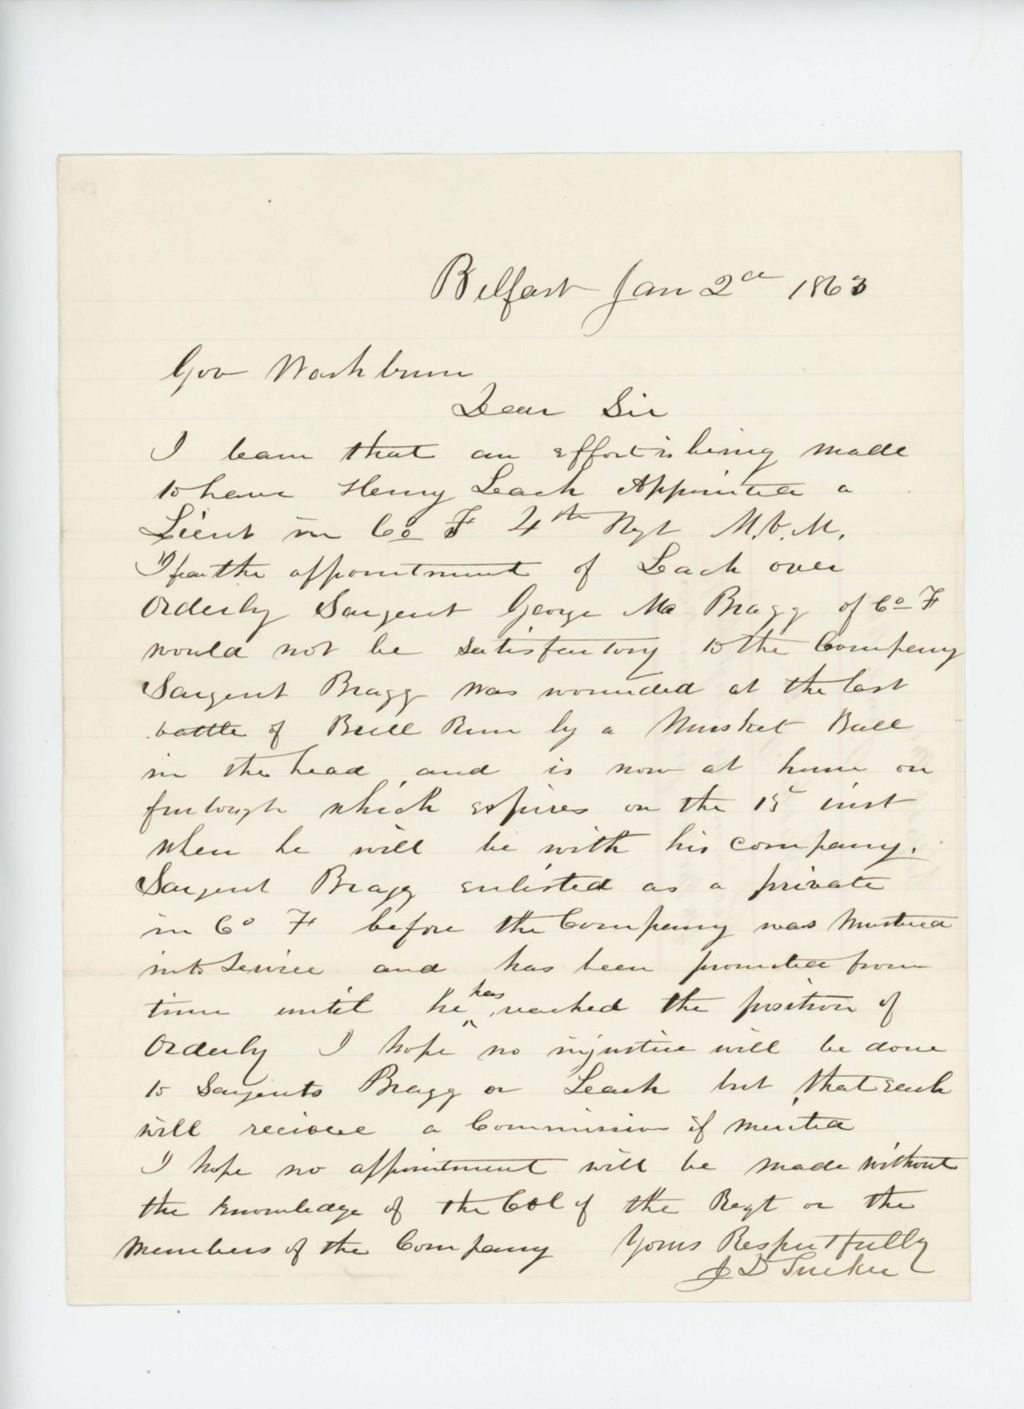 Belfast Jan 2d 1863
Gov Washburn
Dear Sir
I learn that an effort is being made
to have Henry Leach Appointed a
Lieut in Co F 4th Regt M.V.M.
I fear the appointment of Leach over
Orderly Sargent George Mc Bragg of Co F
would not be satisfactory to the Company
Sargent Bragg was wounded at the last
battle of Bull Run by a Musket Ball
in the head, and is now at home on
furlough which expires on the 15 inst
when he will be with his company.
Sargent Bragg enlisted as a private
in Co F before the Company was Mustered
into Service and has been promoted from
time until he has reached the position of
Orderly I hope no injustice will be done
to Sargents Bragg or Leach but that each
will recieve a Commission if merited
I hope no appointment will be made without
the knowledge of the Col of the Regt or the
Members of the Company Yours Respectfully
J D Tucker